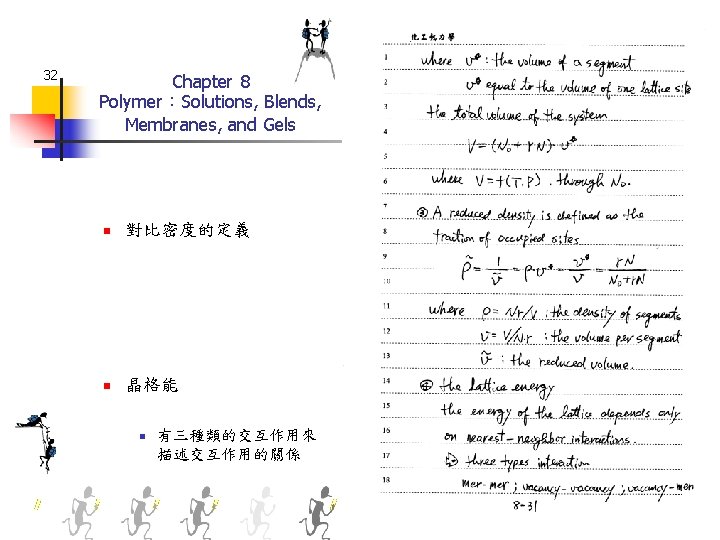 32
Chapter 8
Polymer：Solutions, Blends,
Membranes, and Gels
對比密度的定義
晶格能
有三種類的交互作用來
描述交互作用的關係
化工熱力學
1 where v* : the volume of a segment
2 v* equal to the volume of one lattice site
3 the total volume of the system
4 V = (N₀ + rN) · v*
5
6 where V = f(T, P) . through N₀.
7 ③ A reduced density is defined as the
8 fraction of occupied sites
9 ρ̃ = 1/ṽ = ρ·v* = v*/v = rN/(N₀+rN)
10
11 where ρ = Nr/V : the density of segments
12 v = V/Nr : the volume per segment
13 ṽ : the reduced volume.
14 ④ the lattice energy
15 the energy of the lattice depends only
16 on nearest-neighbor interactions.
17 three types interaction
18 mer-mer ; vacancy-vacancy ; vacancy-mer
8-31